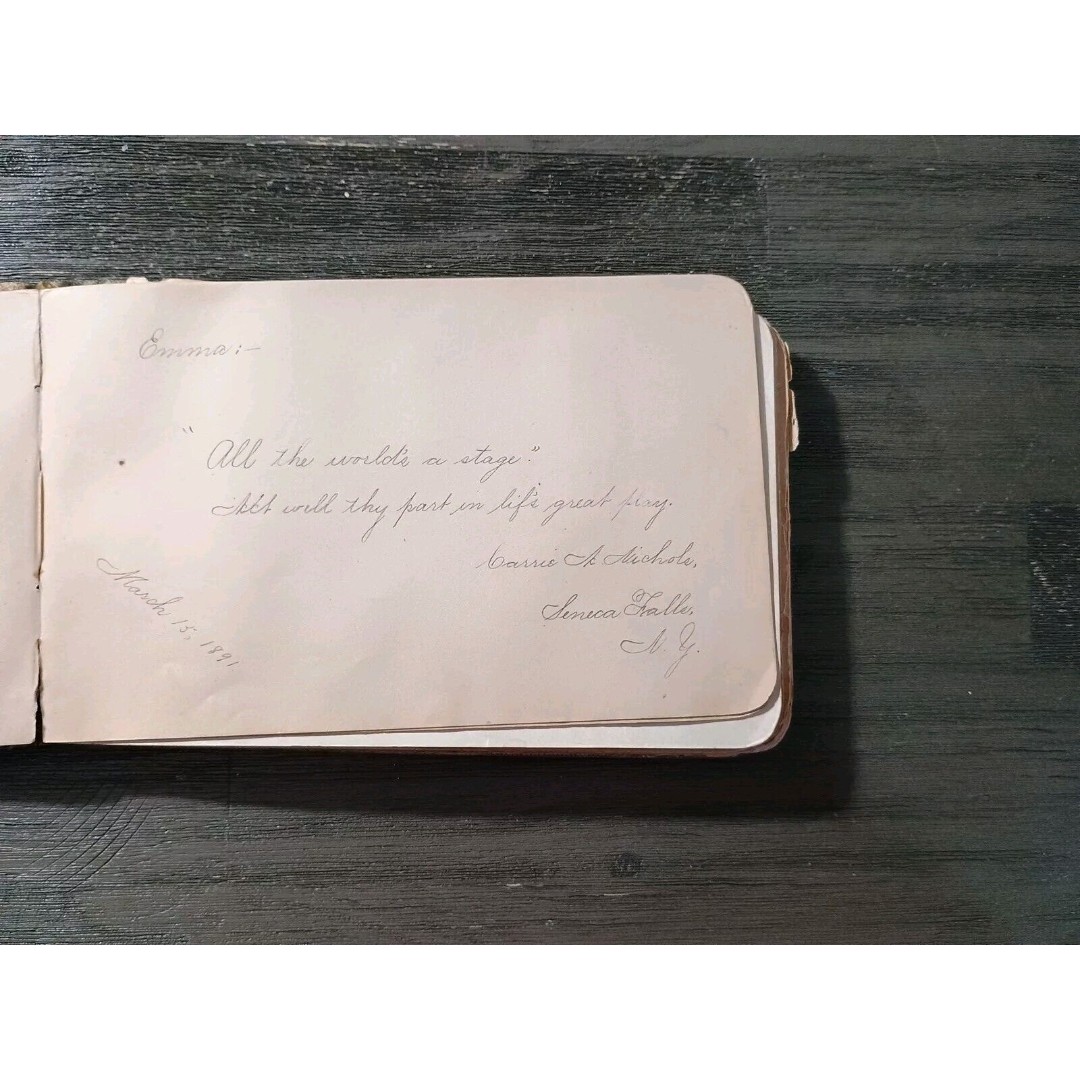 Emma:—
"All the world's a stage."
Act well thy part in life's great play.
Carrie A. Nichols,
Seneca Falls,
N. Y.
March 15, 1891.